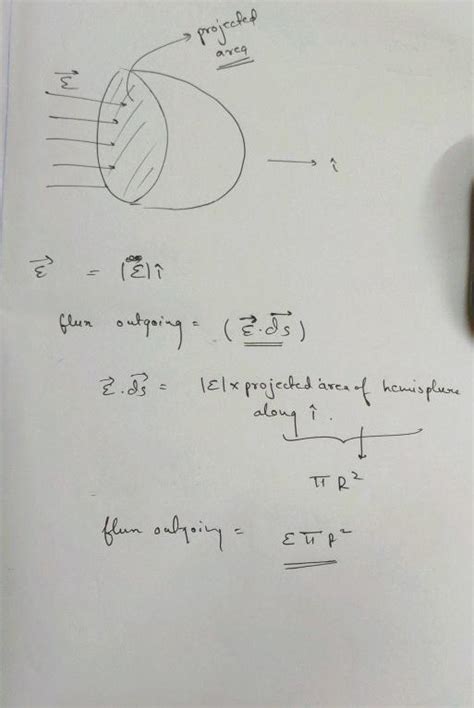 projected
area
→ε
î
→ε = |→ε| î
flux outgoing = (→ε.→ds)
→ε.→ds = |ε| x projected area of hemisphere
along î.
πR²
flux outgoing = επR²